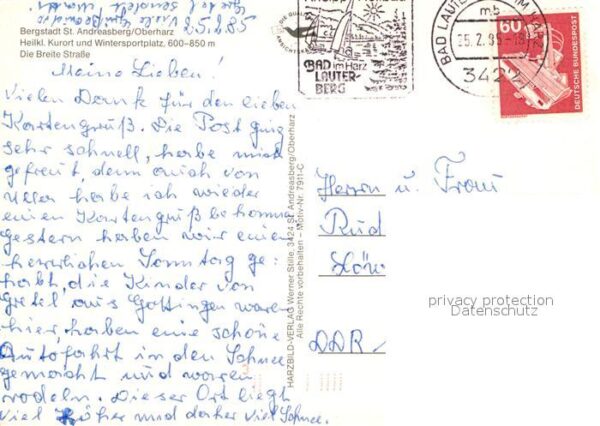 25.2.85
Bergstadt St. Andreasberg/Oberharz
Heilkl. Kurort und Wintersportplatz, 600–850 m
Die Breite Straße
Meine Lieben!
Vielen Dank für den lieben
Kartengruß. Die Post ging
sehr schnell, habe mich
gefreut, denn auch von
habe ich wieder
einen Kartengruß bekomm.
Gestern haben wir einen
herrlichen Sonntag ge-
habt, die Kinder von
Gretel aus Göttingen waren
hier, haben eine schöne
Autofahrt in den Schnee
gemacht und waren
rodeln. Dieser Ort liegt
viel höher und daher viel Schnee.
HARZBILD-VERLAG Werner Stille, 3424 St. Andreasberg/Oberharz
Alle Rechte vorbehalten – Motiv-Nr. 7911-C
BAD im Harz
LAUTER-
BERG
BAD LAUTERBERG IM HARZ
mb
3422
60
DEUTSCHE BUNDESPOST
Herrn u. Frau
Rud
DDR
privacy protection
Datenschutz